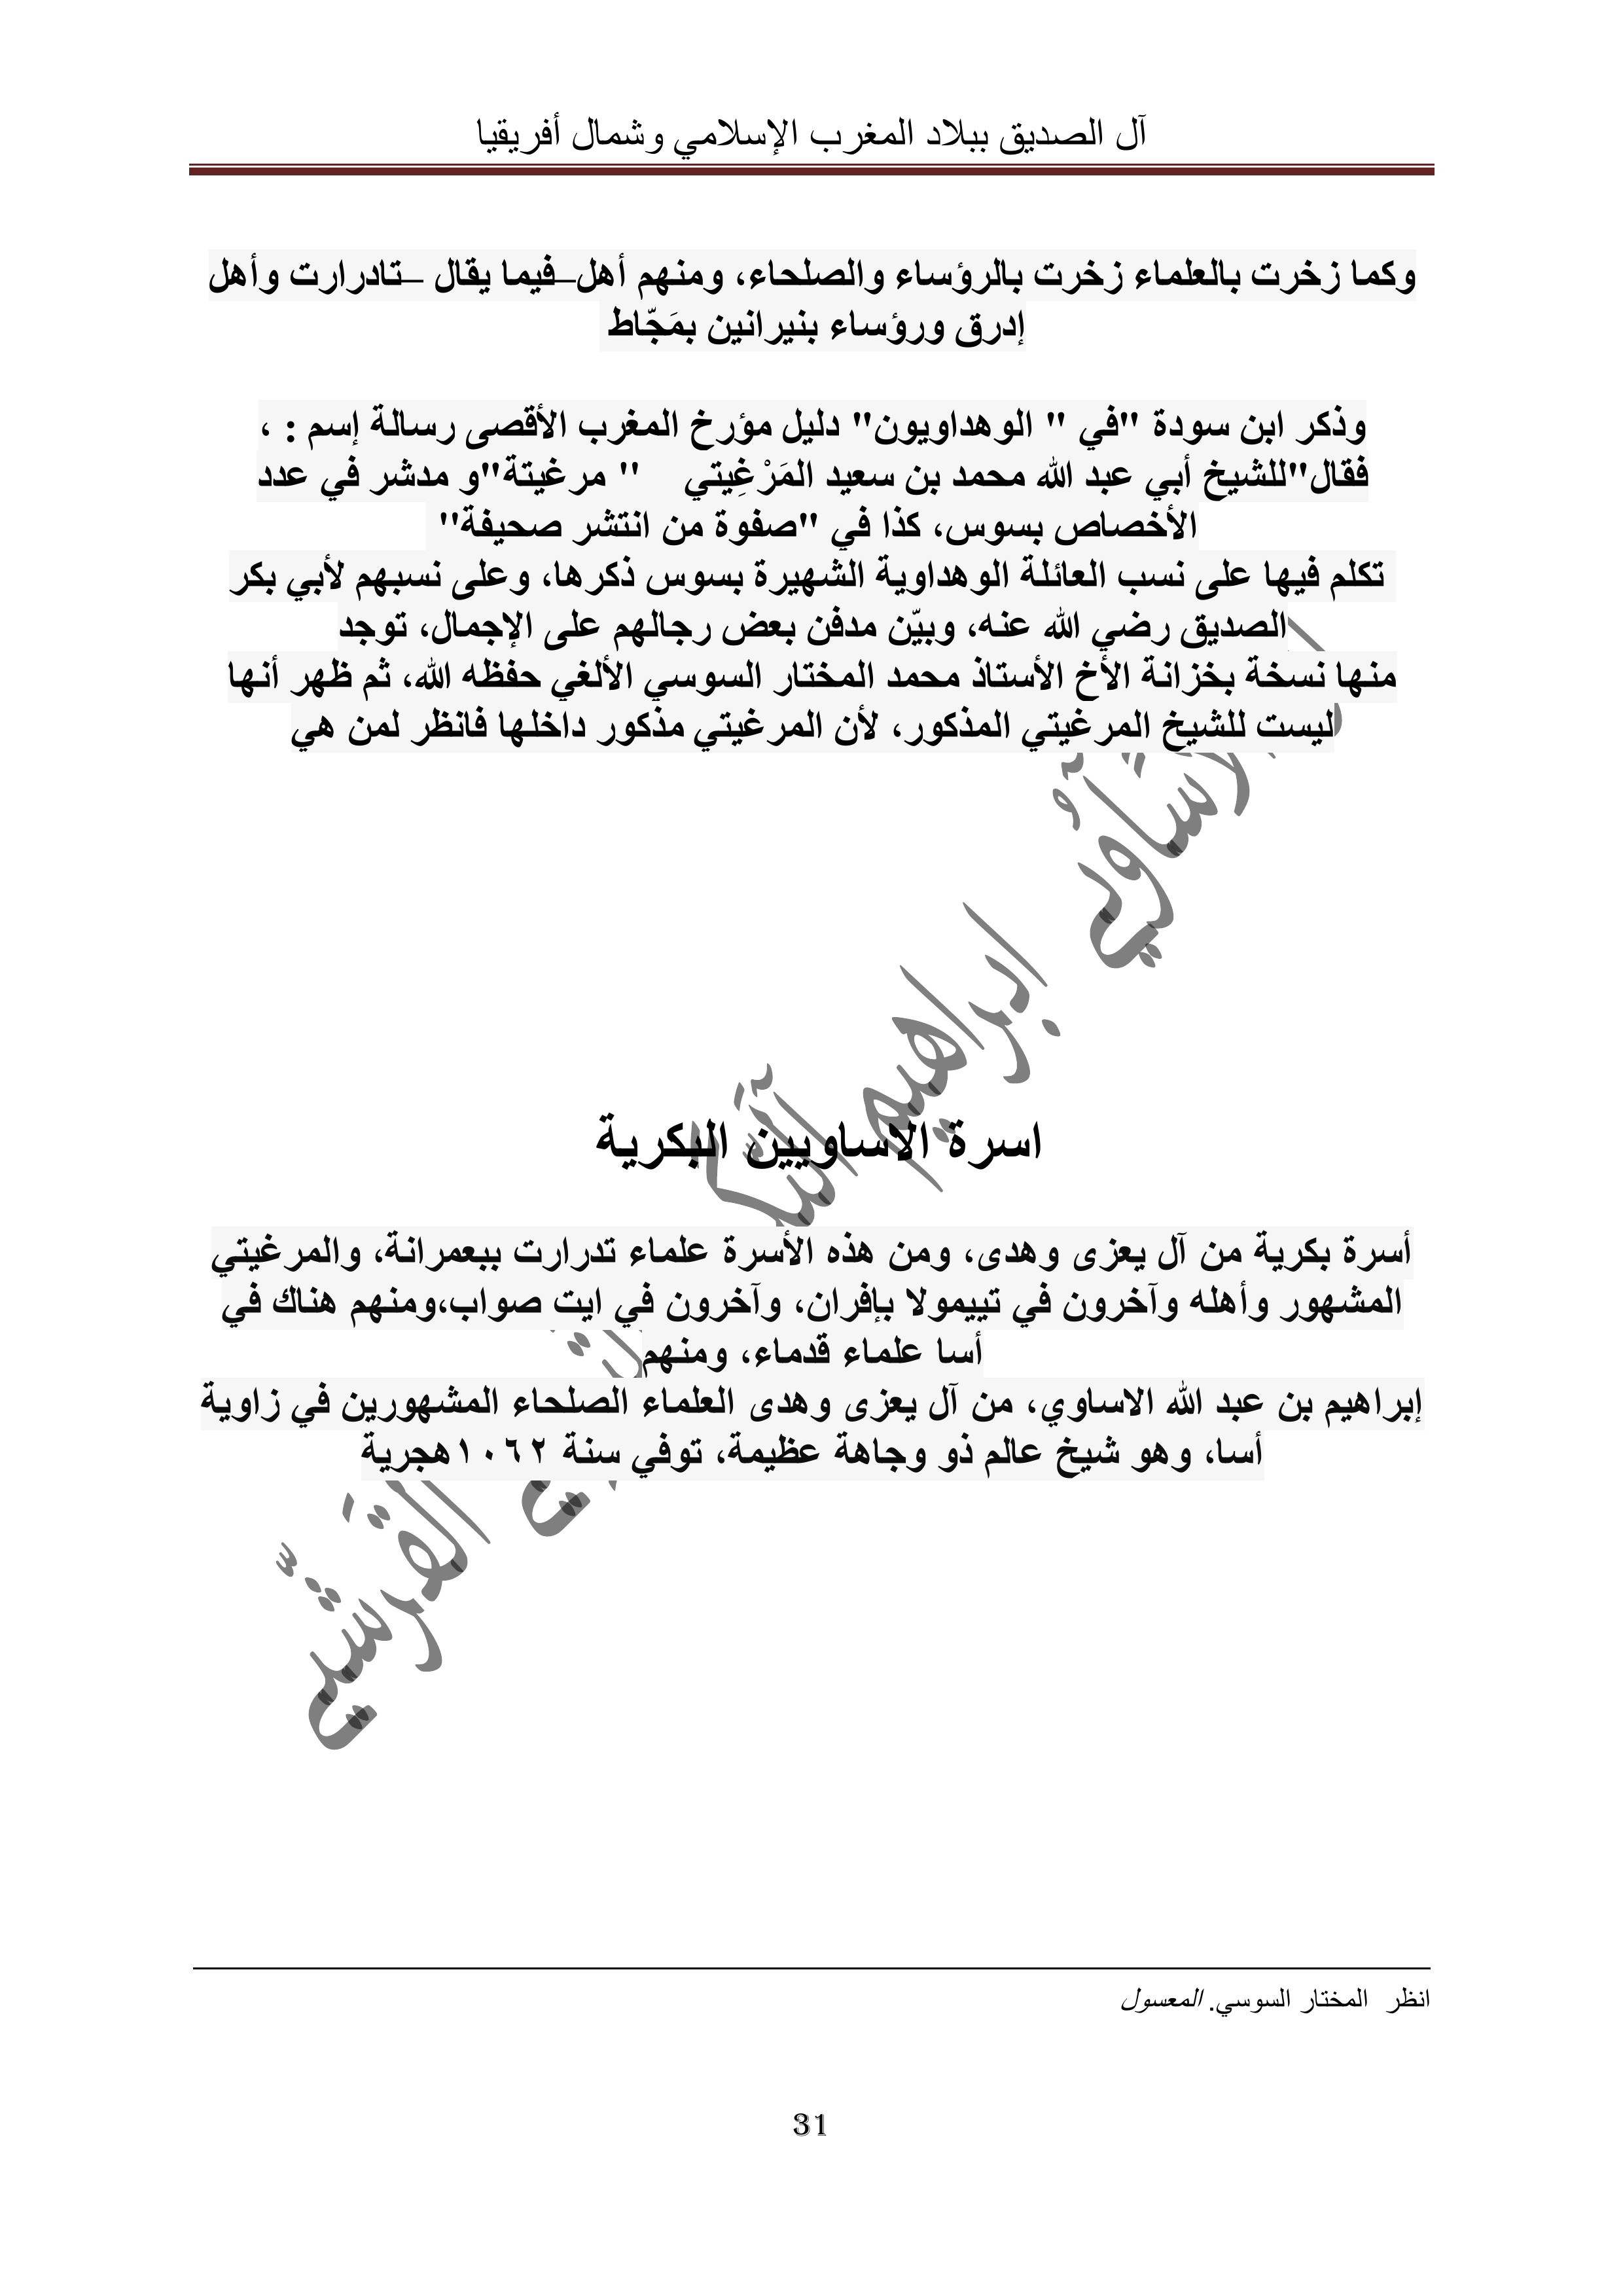 آل الصديق ببلاد المغرب الإسلامي وشمال أفريقيا
وكما زخرت بالعلماء زخرت بالرؤساء والصلحاء، ومنهم أهل–فيما يقال –تادرارت وأهل
إدرق ورؤساء بنيرانين بمَجّاط
وذكر ابن سودة "في " الوهداويون" دليل مؤرخ المغرب الأقصى رسالة إسم : ،
فقال"للشيخ أبي عبد الله محمد بن سعيد المَرْغِيتي " مرغيتة"و مدشر في عدد
الأخصاص بسوس، كذا في "صفوة من انتشر صحيفة"
تكلم فيها على نسب العائلة الوهداوية الشهيرة بسوس ذكرها، وعلى نسبهم لأبي بكر
الصديق رضي الله عنه، وبيّن مدفن بعض رجالهم على الإجمال، توجد
منها نسخة بخزانة الأخ الأستاذ محمد المختار السوسي الألغي حفظه الله، ثم ظهر أنها
ليست للشيخ المرغيتي المذكور، لأن المرغيتي مذكور داخلها فانظر لمن هي
اسرة الاساويين البكرية
أسرة بكرية من آل يعزى وهدى، ومن هذه الأسرة علماء تدرارت ببعمرانة، والمرغيتي
المشهور وأهله وآخرون في تييمولا بإفران، وآخرون في ايت صواب،ومنهم هناك في
أسا علماء قدماء، ومنهم
إبراهيم بن عبد الله الاساوي، من آل يعزى وهدى العلماء الصلحاء المشهورين في زاوية
أسا، وهو شيخ عالم ذو وجاهة عظيمة، توفي سنة ١٠٦٢هجرية
انظر المختار السوسي. المعسول
31